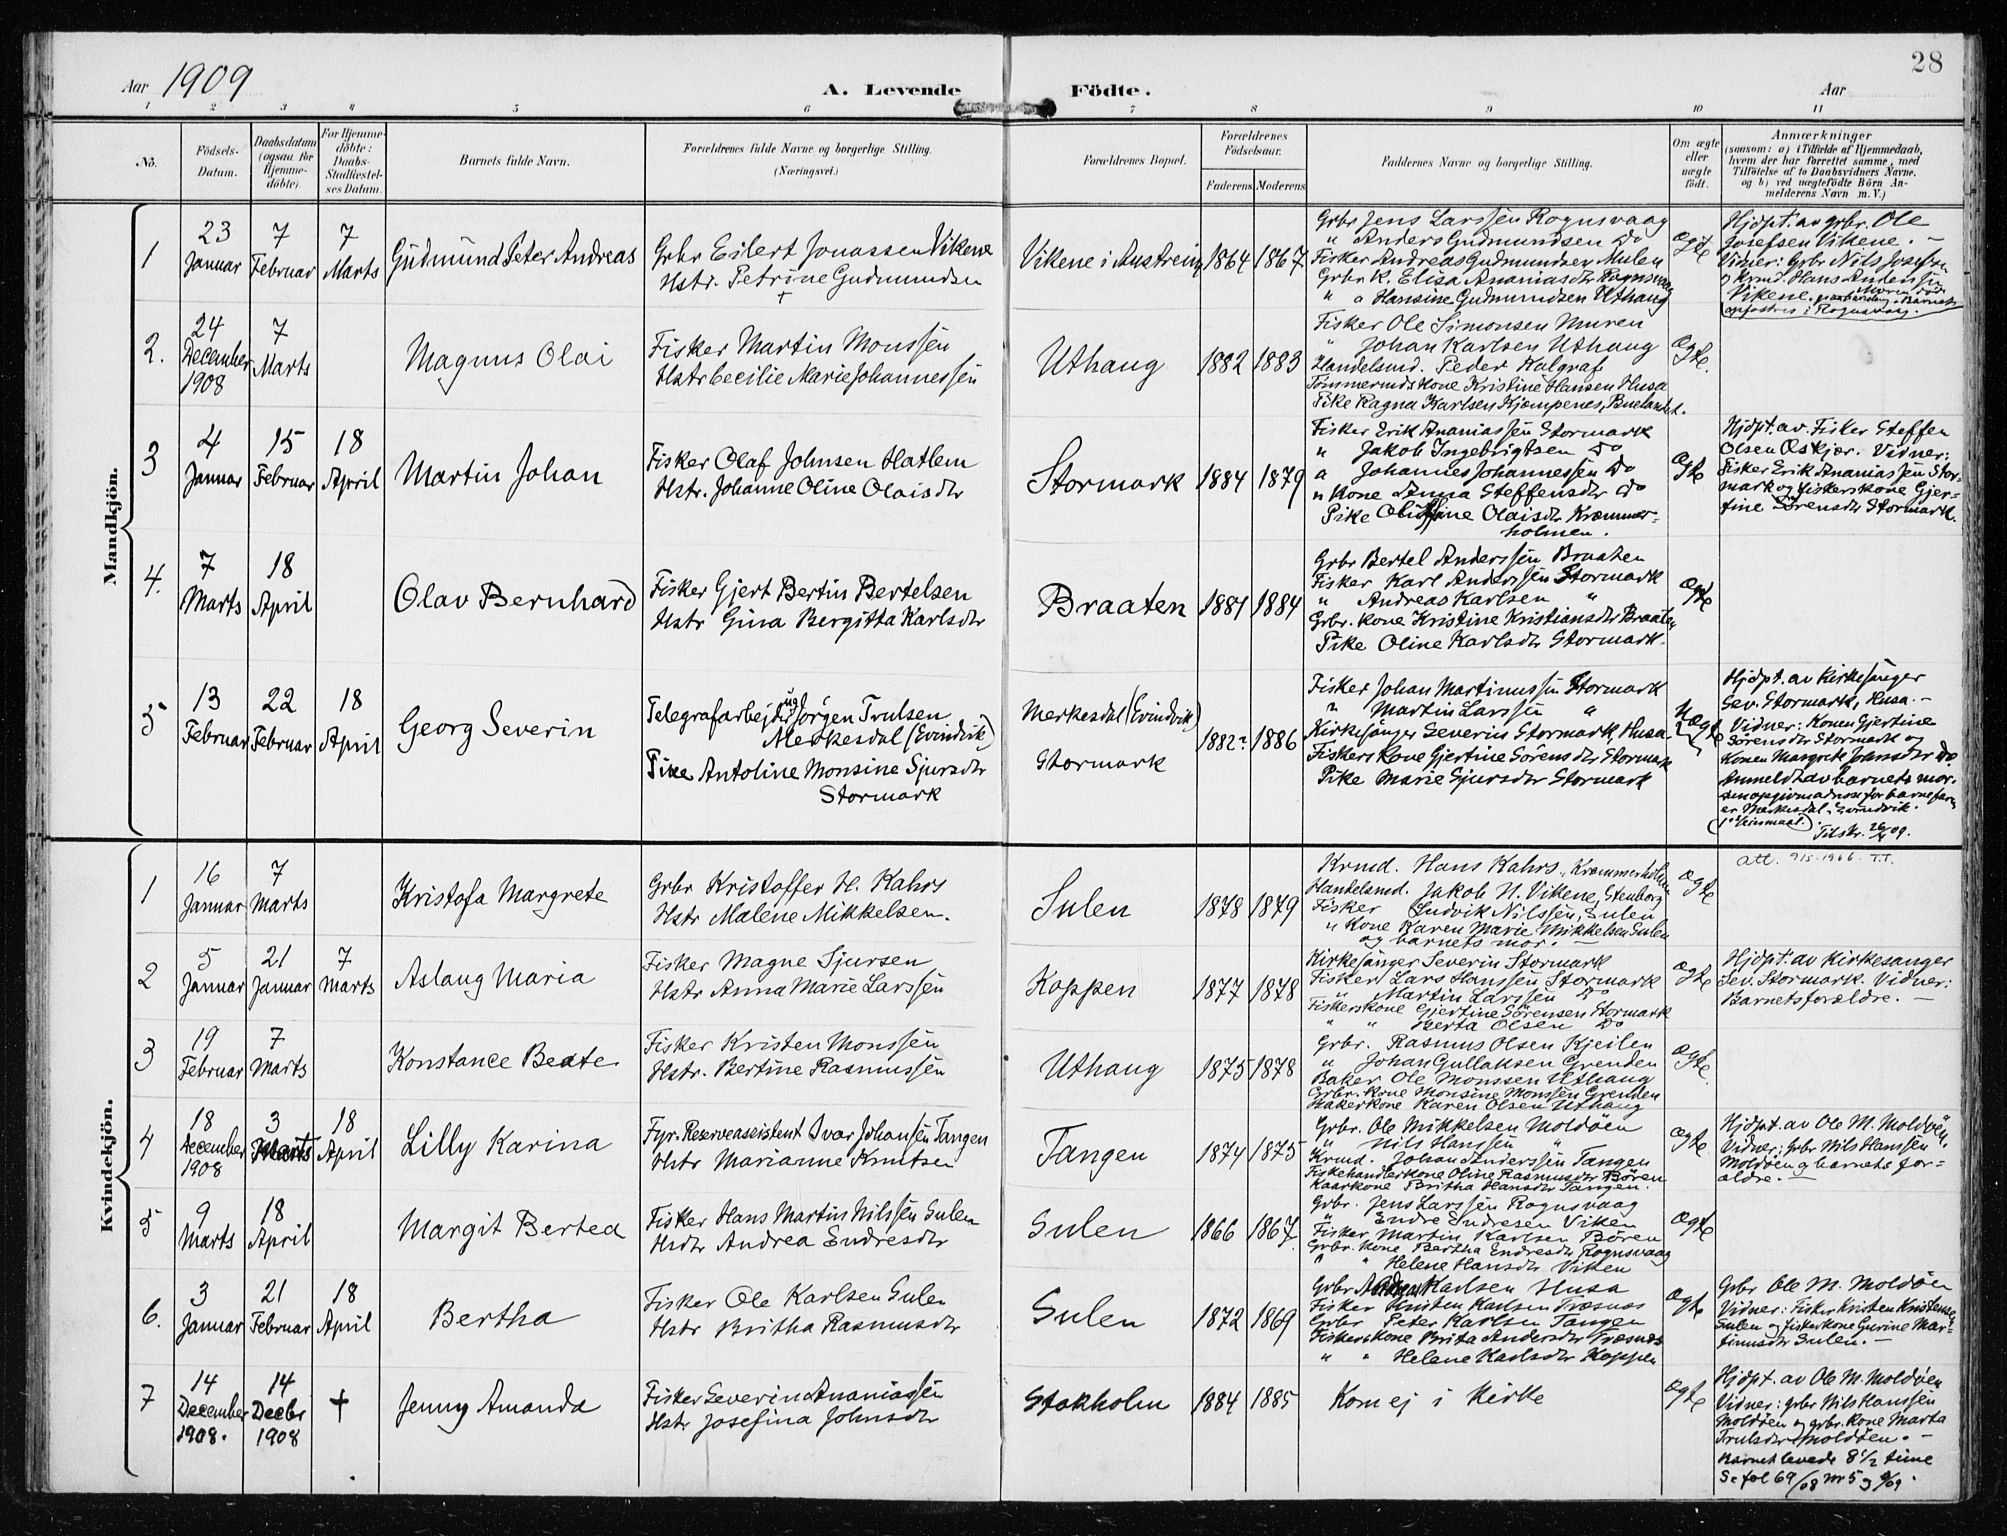 28
Aar 1909
A. Levende Födte.
Aar
1 2 3 4 5 6 7 8 9 10 11
No.
Födsels-
Datum.
Daabsdatum
(ogsaa for
Hjemme-
döbte).
For Hjemme-
döbte:
Daabs-
Stadfæstel-
ses Datum.
Barnets fulde Navn.
Forældrenes fulde Navne og borgerlige Stilling.
(Næringsvei.)
Forældrenes Bopæl.
Forældrenes
Födselsaar.
Faderens Moderens
Faddernes Navne og borgerlige Stilling.
Om ægte
eller
uægte
født.
Anmærkninger
(saasom: a) i Tilfælde af Hjemmedaab,
hvem der har forrettet samme, med
Tilföielse af to Daabsvidners Navne,
og b) ved uægtefödte Börn An-
melderens Navn m. V.)
Mandkjön.
1
23
Januar
7
Februar
7
Marts
Gudmund Peter Andreas
Grbr Eilert Jonassen Vikene
Hstr. Petrine Gudmundsen
+
Vikene i Austreim
1864 1867
Grbr Jens Larssen Rognsvaag
" Anders Gudmundsen Do
Fisker Andreas Gudmundsen Mulen
Grbr K. Elisa Ananiasdr Rognsvaag
" " Hansine Gudmundsen Uthaug
Ægte
Hjdpt. av grbr. Ole
Josefsen Vikene. –
Vidner: Grbr Nils Josefsen
og Krmd. Hans Andersen
Vikene.
opfostres i Rognsvaag.
2.
24
December
1908
7
Marts
Magnus Olai
Fisker Martin Monssen
Hstr Cecilie Marie Johannessen
Uthaug
1882 1883
Fisker Ole Simonsen Muren
" Johan Karlsen Uthaug
Handelsmd. Peder Kalgraf
Tømmermds Kone Kristine Hansen Husa
Pike Ragna Karlsen Kjempenes, Buelandet.
Ægte.
3
4
Januar
15
Februar
18
April
Martin Johan
Fisker Olaf Johnsen Hatlem
Hstr. Johanne Oline Olaisdr
Stormark
1884 1879
Fisker Erik Ananiassen Stormark
" Jakob Ingebrigtsen Do
" Johannes Johannessen Do
" Kone Anna Steffensdr Do
Pike Olaisdr Kræmmer-
holmen.
Ægte
Hjdpt. av. Fisker Steffen
Olsen Oskjær. Vidner:
Fisker Erik Ananiassen Stor-
mark og fiskerskone Gjer-
tine Sørensdr Stormark.
4.
7
Marts
18
April
Olav Bernhard
Fisker Gjert Bertin Bertelsen
Hstr Gina Bergitta Karlsdr
Braaten
1881 1884
Grbr Bertel Anderssen Braaten
Fisker Karl Anderssen Stormark
" Andreas Karlsen "
Grbr. Kone Kristine Kristiansdr Braaten
Pike Oline Karlsdr Stormark.
Ægte
5
13
Februar
22
Februar
18
April
Georg Severin
Telegrafarbejder ug Jørgen Trulsen
Merkesdal (Evindvik)
Pike Antoline Monsine Sjursdr
Stormark
Merkesdal (Evindvik)
Stormark
1882 1886
Fisker Johan Martinussen Stormark
" Martin Larssen "
Kirkesanger Severin Stormark, Husa
Fiskers Kone Gjertine Sørensdr Stormark
Pike Marie Sjursdr Stormark
Uægte
Hjdpt. av Kirkesanger
Sev. Stormark, Husa. –
Vidner: Konen Gjertine
Sørensdr Stormark og
Konen Margrete Johnsdr Do.
Anmeldt av barnets mor.
er Merkesdal, Evindvik.
Tilskr. 26/4 09.
Kvindekjön.
1
16
Januar
7
Marts
Kristofa Margrete
Grbr Kristoffer H. Kahrs
Hstr Malene Mikkelsen.
Sulen
1878 1879
Krmd. Hans Kahrs, Kræmmerholmen
Handelsmd. Jakob N. Vikene, Stenborg
Fisker Ludvik Nilssen, Sulen
" Kone Karen Marie Mikkelsen Sulen
og barnets mor. –
Ægte
att. 9/5-1966. T.T.
2
5
Januar
21
Januar
7
Marts
Aslaug Maria
Fisker Magne Sjursen
Hstr Anna Marie Larssen
Koppen
1877 1878
Kirkesanger Severin Stormark
Fisker Lars Hanssen Stormark
" Martin Larssen Do
Fiskerskone Gjertine Sørensen Stormark
" " Berta Olsen Do
Ægte
Hjdpt. av Kirkesanger
Sev. Stormark. Vidner:
Barnets forældre. –
3
19
Februar
7
Marts
Konstance Beate
Fisker Kristen Monssen
Hstr. Bertine Rasmussen
Uthaug
1875 1878
Grbr. Rasmus Olsen Kjeilen
" Johan Gullaksen Grenden
Baker Ole Monssen Uthaug
Grbr. Kone Monsine Monssen Grenden
Bakerkone Karen Olsen Uthaug
Ægte.
4
18
December
1908
3
Marts
18
April
Lilly Karina
Fyr. Reserveassistent Ivar Johansen Tangen
Hstr Marianne Knutsen
Tangen
1874 1875
Grbr. Ole Mikkelsen Moldøen
" Nils Hanssen "
Krmd. Johan Anderssen Tangen
Fiskehandlerkone Oline Rasmusdr Børen
Kaarkone Britha Hansdr Tangen.
Ægte.
Hjdpt. av Ole M. Moldøen,
Vidner: Grbr Nils Hanssen
Moldøen og barnets for-
ældre. –
5
9
Marts
18
April
Margit Bertea
Fisker Hans Martin Nilssen Sulen
Hsdr Andrea Endresdr
Sulen
1866 1867.
Grbr. Jens Larssen Rognsvaag
" Endre Endresen Viken
Fisker Martin Karlsen Børen
Grbr. Kone Bertha Endresdr Rognsvaag
" " Helene Hansdr Vikten
Ægte
6.
3
Januar
21
Februar
18
April
Bertha
Fisker Ole Karlsen Sulen
Hstr Britha Rasmusdr
Sulen
1872 1869
Grbr Karlsen Husa
Fisker Kristen Karlsen Træsnæs
Grbr Peter Karlsen Tangen
Fiskerskone Brita Andersdr Træsnæs
" " Helene Karlsdr Koppen
Ægte
Grbr Ole M. Moldøen
Vidner: Fisker Kristen Kristensen
Sulen og fiskerkone Gurine Mar-
tinusdr Sulen. –
7
14
December
1908.
14
Decbr
1908
+
Jenny Amanda
Fisker Severin Ananiassen
Hstr Josefina Johnsdr
Stokholm
1884 1885
Kom ej i Kirke
Ægte
Hjdpt. av Ole M. Moldøen
Vidner: grbr Nils Hanssen
Moldøen og grbr. Kone Marta
Trulsdr Moldøen. –
Barnet levede 8 1/2 time
Se fol 69/08 nr 5